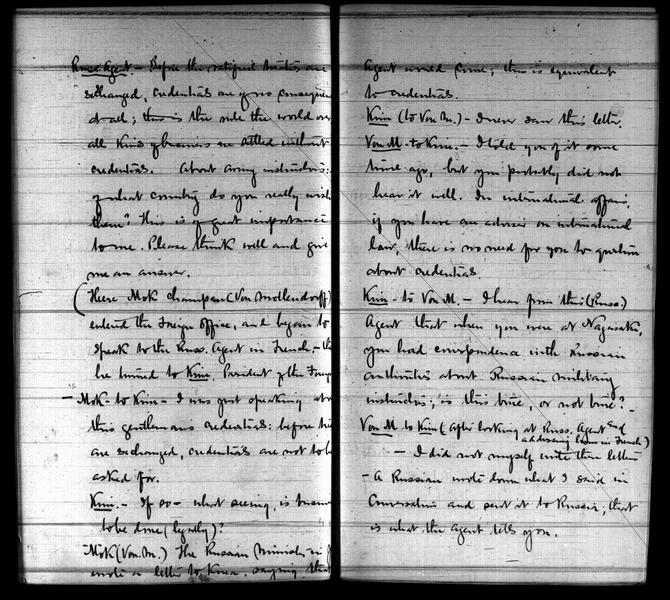 Russ Agent. - Before the ratified treaties are
exchanged, credentials are of no consequence
at all; this is the rule the world over
all kinds of business are settled without
credentials. About army instructors:
of what country do you really wish
them? This is of great importance
to me. Please think well and give
me an answer.
(Here Mok champan (Von Mollendorff)
entered the Foreign Office, and began to
speak to the Russ. Agent in French, - th
he turned to Kim, President of the Foreign
- Mok to Kim - I was just speaking abo
this gentleman's credentials: before tre
are exchanged, credentials are not to be
asked for.
Kim. - If so - what seeing, is busine
to be done (by, by)?
- Mok (Von. M.) The Russian Minister in
wrote a letter to Korea, saying that
Agent would come; this is equivalent
to credentials.
Kim (to Von M.) - I never saw this letter.
Von M. to Kim. - I told you of it some
time ago, but you probably did not
hear it well. In international affairs,
if you have an adviser on international
law, there is no need for you to question
about credentials.
Kim - to Von M. - I hear from this (Russ.)
Agent that when you were at Nagasaki,
you had correspondence with Russian
authorities about Russian military
instructors; is this true, or not true? -
Von M. to Kim (after looking at Russ. Agent and
addressing him in French)
- I did not myself write these letters
- A Russian wrote down what I said in
conversation and sent it to Russia; that
is what the Agent tells you.